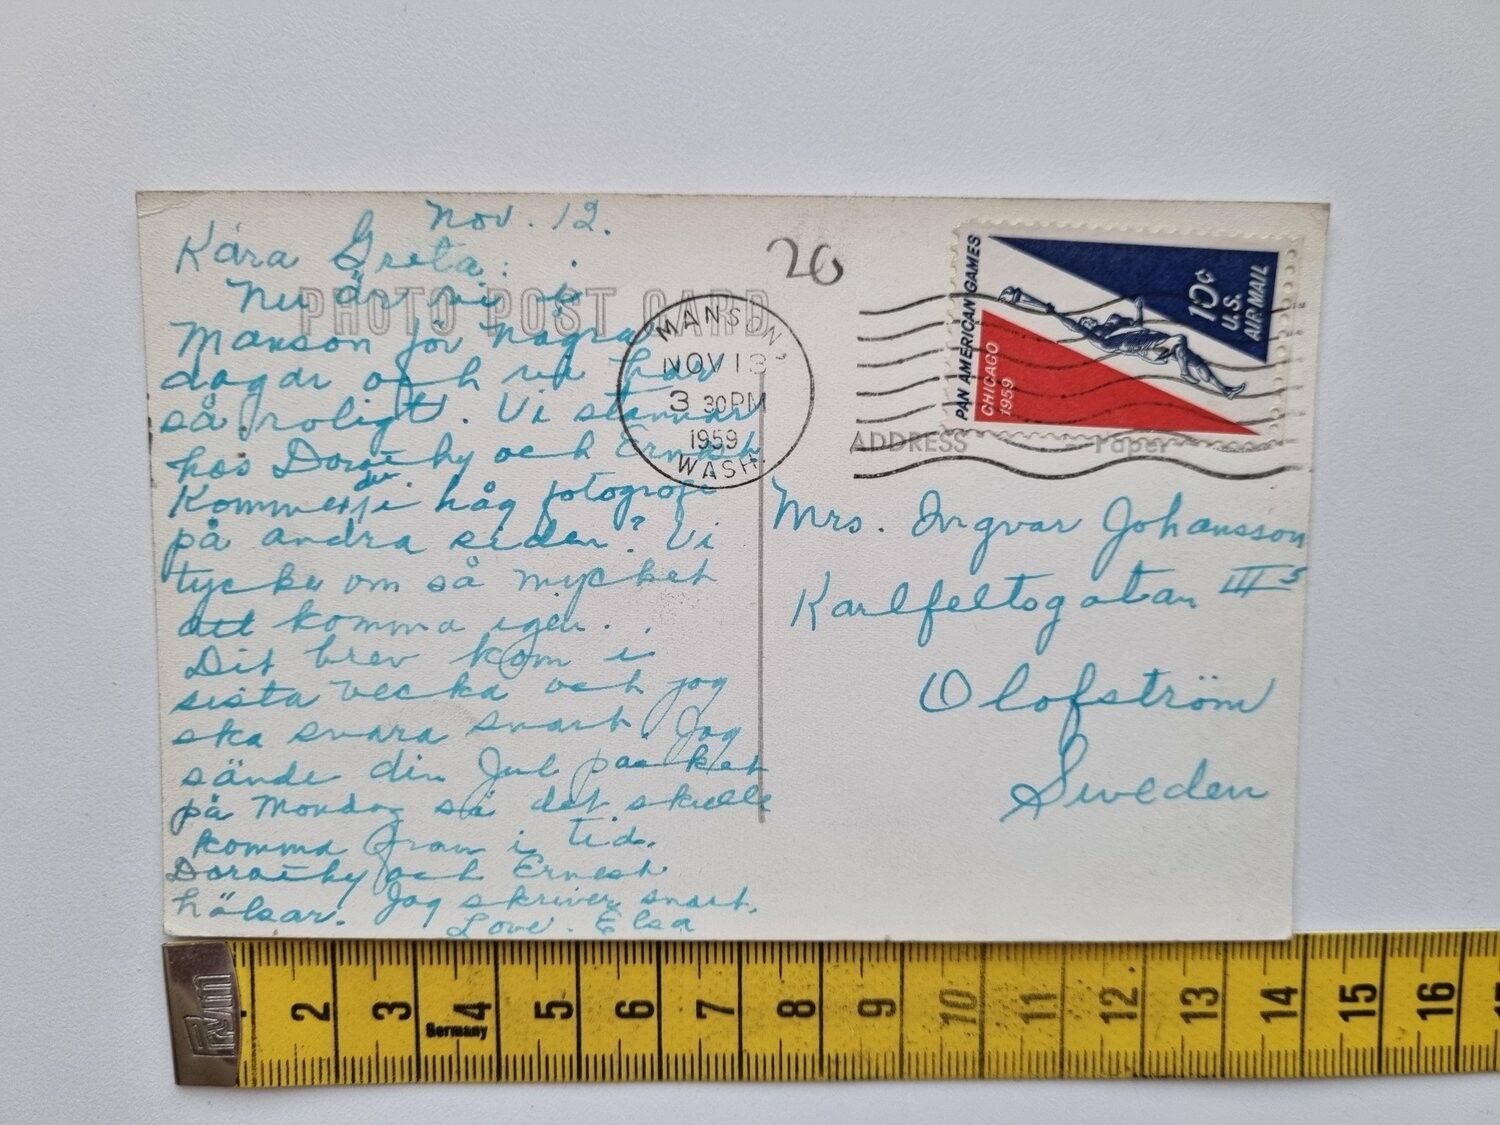 Nov. 12.
Kära Greta:
Nu är vi i
Manson för några
dagar och vi har
så roligt. Vi stannar
hos Dorothy och Ernest
Kommer du i håg fotografi
på andra sidan? Vi
tycker om så mycket
att komma igen.
Dit brev kom i
sista vecka och jag
ska svara snart. Jag
sände din Jul packet
på Monday så det skulle
komma fram i tid.
Dorothy och Ernest
hälsar. Jag skriver snart.
Love. Elsa
PHOTO POST CARD
20
MANSON,
NOV 13
3 30 PM
1959
WASH.
PAN AMERICAN GAMES
CHICAGO
1959
10¢
U.S.
AIR MAIL
ADDRESS
Paper
Mrs. Ingvar Johansson
Karlfeltsgatan III 5
Olofström
Sweden
2 3 4 5 6 7 8 9 10 11 12 13 14 15 16
Germany